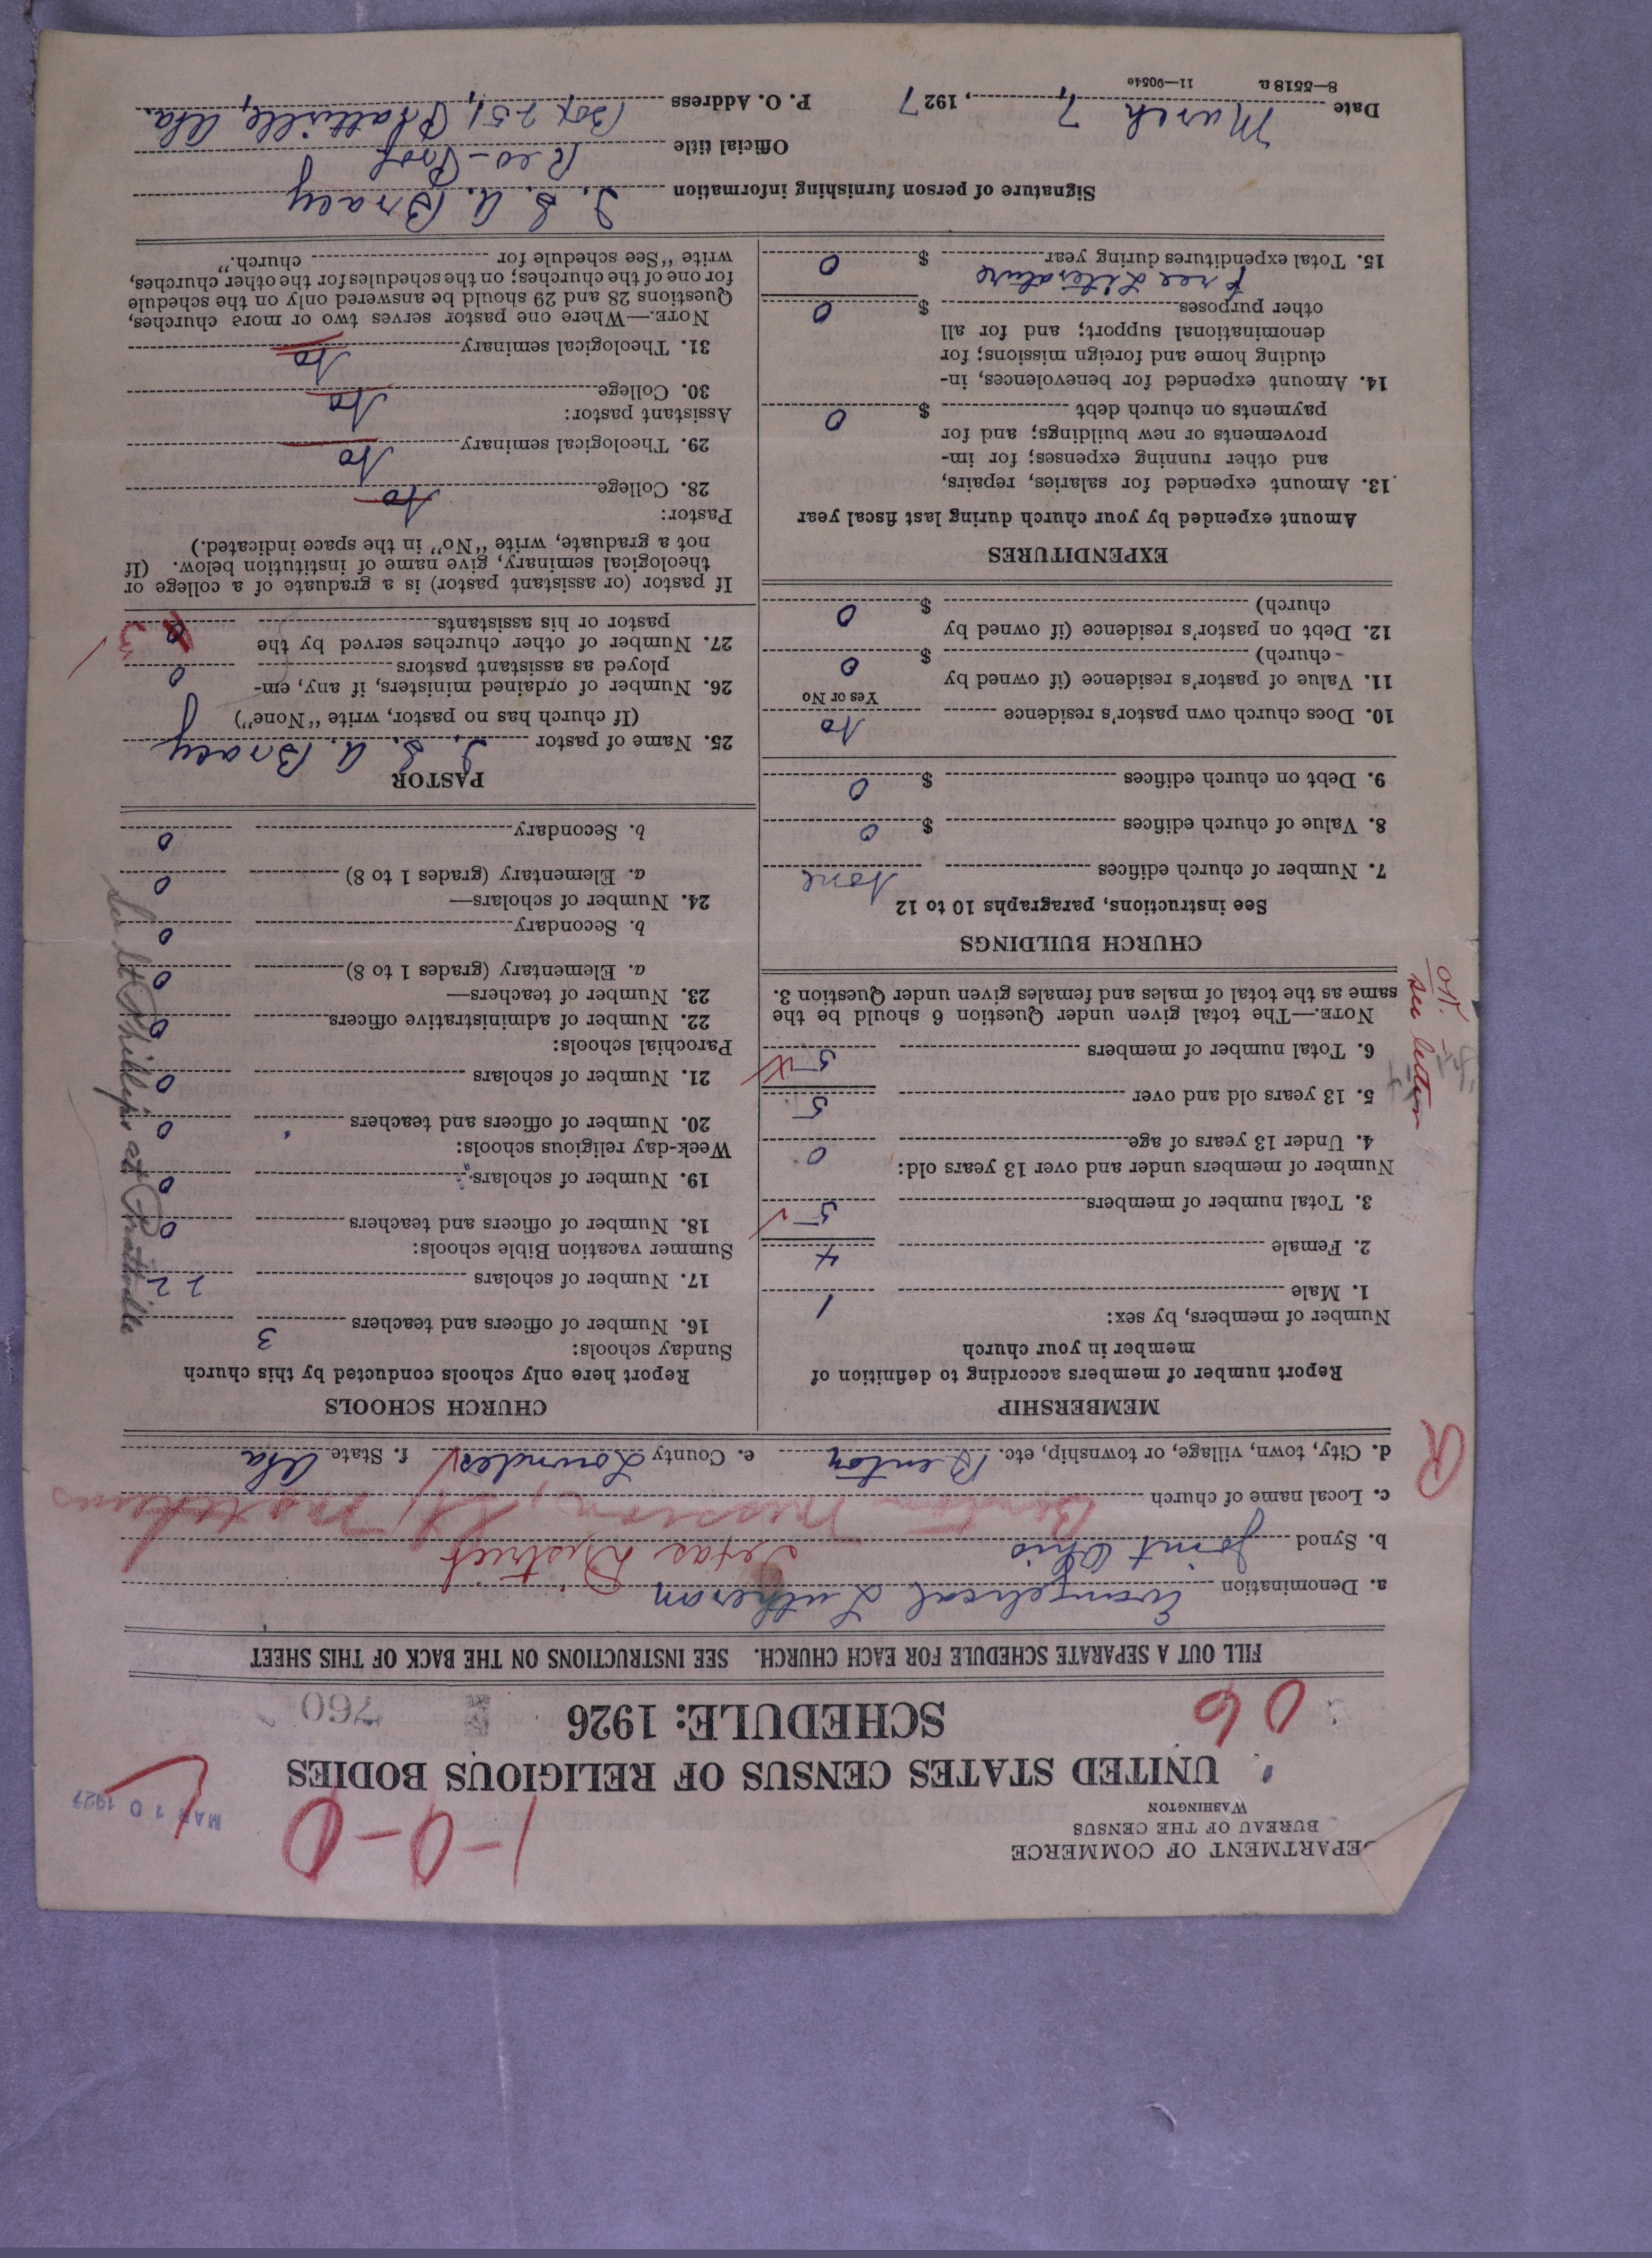 DEPARTMENT OF COMMERCE
BUREAU OF THE CENSUS
WASHINGTON
1-0-0
MAR 10 1927
UNITED STATES CENSUS OF RELIGIOUS BODIES
SCHEDULE: 1926
06
760
FILL OUT A SEPARATE SCHEDULE FOR EACH CHURCH. SEE INSTRUCTIONS ON THE BACK OF THIS SHEET
a. Denomination Evangelical Lutheran
b. Synod Joint Ohio Texas District
c. Local name of church Benton Mission,
d. City, town, village, or township, etc. Benton e. County Lowndes f. State Ala
R
MEMBERSHIP
Report number of members according to definition of
member in your church
Number of members, by sex:
1. Male 1
2. Female 4
3. Total number of members 5
Number of members under and over 13 years old:
4. Under 13 years of age 0
5. 13 years old and over 5
6. Total number of members 5
NOTE.—The total given under Question 6 should be the
same as the total of males and females given under Question 3.
OK.
see letter
CHURCH BUILDINGS
See instructions, paragraphs 10 to 12
7. Number of church edifices None
8. Value of church edifices $ 0
9. Debt on church edifices $ 0
10. Does church own pastor's residence No
Yes or No
11. Value of pastor's residence (if owned by
church) $ 0
12. Debt on pastor's residence (if owned by
church) $ 0
EXPENDITURES
Amount expended by your church during last fiscal year
13. Amount expended for salaries, repairs,
and other running expenses; for im-
provements or new buildings; and for
payments on church debt $ 0
14. Amount expended for benevolences, in-
cluding home and foreign missions; for
denominational support; and for all
other purposes $ 0
free Literature
15. Total expenditures during year $ 0
CHURCH SCHOOLS
Report here only schools conducted by this church
Sunday schools:
16. Number of officers and teachers 3
17. Number of scholars 22
Summer vacation Bible schools:
18. Number of officers and teachers 0
19. Number of scholars 0
Week-day religious schools:
20. Number of officers and teachers 0
21. Number of scholars 0
Parochial schools:
22. Number of administrative officers 0
23. Number of teachers—
a. Elementary (grades 1 to 8) 0
b. Secondary 0
24. Number of scholars—
a. Elementary (grades 1 to 8) 0
b. Secondary 0
PASTOR
25. Name of pastor I. S. A. Bracy
(If church has no pastor, write "None")
26. Number of ordained ministers, if any, em-
ployed as assistant pastors 0
27. Number of other churches served by the
pastor or his assistants 3
If pastor (or assistant pastor) is a graduate of a college or
theological seminary, give name of institution below. (If
not a graduate, write "No" in the space indicated.)
Pastor:
28. College No
29. Theological seminary No
Assistant pastor:
30. College No
31. Theological seminary No
NOTE.—Where one pastor serves two or more churches,
Questions 28 and 29 should be answered only on the schedule
for one of the churches; on the schedules for the other churches,
write "See schedule for church."
Signature of person furnishing information I. S. A. Bracy
Official title Rev-Prof
Date March 7, 1927 P. O. Address Box 251, Prattville, Ala.
8—5518 a 11—9054c